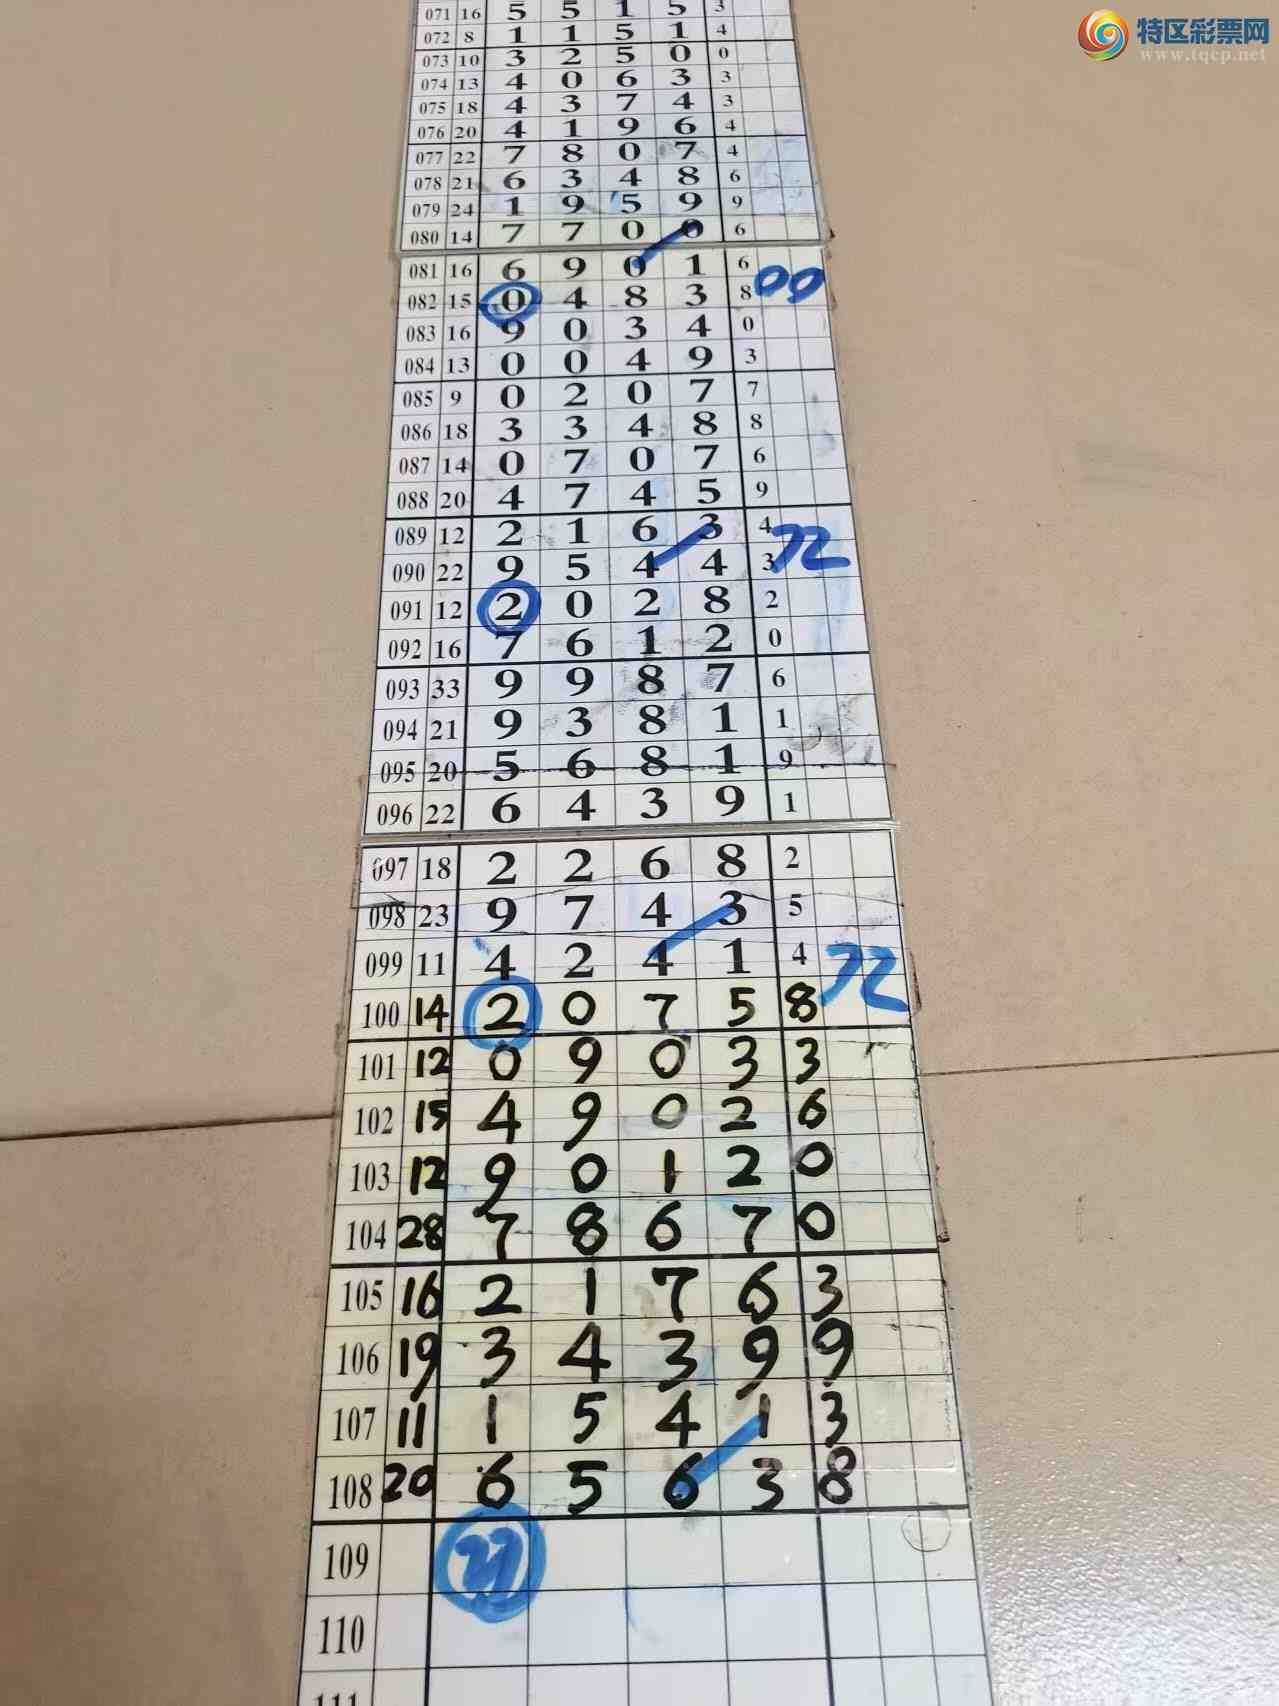 特区彩票网
www.tqcp.net
071 16 5 5 1 5 3
072 8 1 1 5 1 4
073 10 3 2 5 0 0
074 13 4 0 6 3 3
075 18 4 3 7 4 3
076 20 4 1 9 6 4
077 22 7 8 0 7 4
078 21 6 3 4 8 6
079 24 1 9 5 9 9
080 14 7 7 0 0 6
081 16 6 9 0 1 6
00
082 15 0 4 8 3 8
083 16 9 0 3 4 0
084 13 0 0 4 9 3
085 9 0 2 0 7 7
086 18 3 3 4 8 8
087 14 0 7 0 7 6
088 20 4 7 4 5 9
089 12 2 1 6 3 4
72
090 22 9 5 4 4 3
091 12 2 0 2 8 2
092 16 7 6 1 2 0
093 33 9 9 8 7 6
094 21 9 3 8 1 1
095 20 5 6 8 1 9
096 22 6 4 3 9 1
097 18 2 2 6 8 2
098 23 9 7 4 3 5
099 11 4 2 4 1 4
72
100 14 2 0 7 5 8
101 12 0 9 0 3 3
102 15 4 9 0 2 6
103 12 9 0 1 2 0
104 28 7 8 6 7 0
105 16 2 1 7 6 3
106 19 3 4 3 9 9
107 11 1 5 4 1 3
108 20 6 5 6 3 8
109
110
111